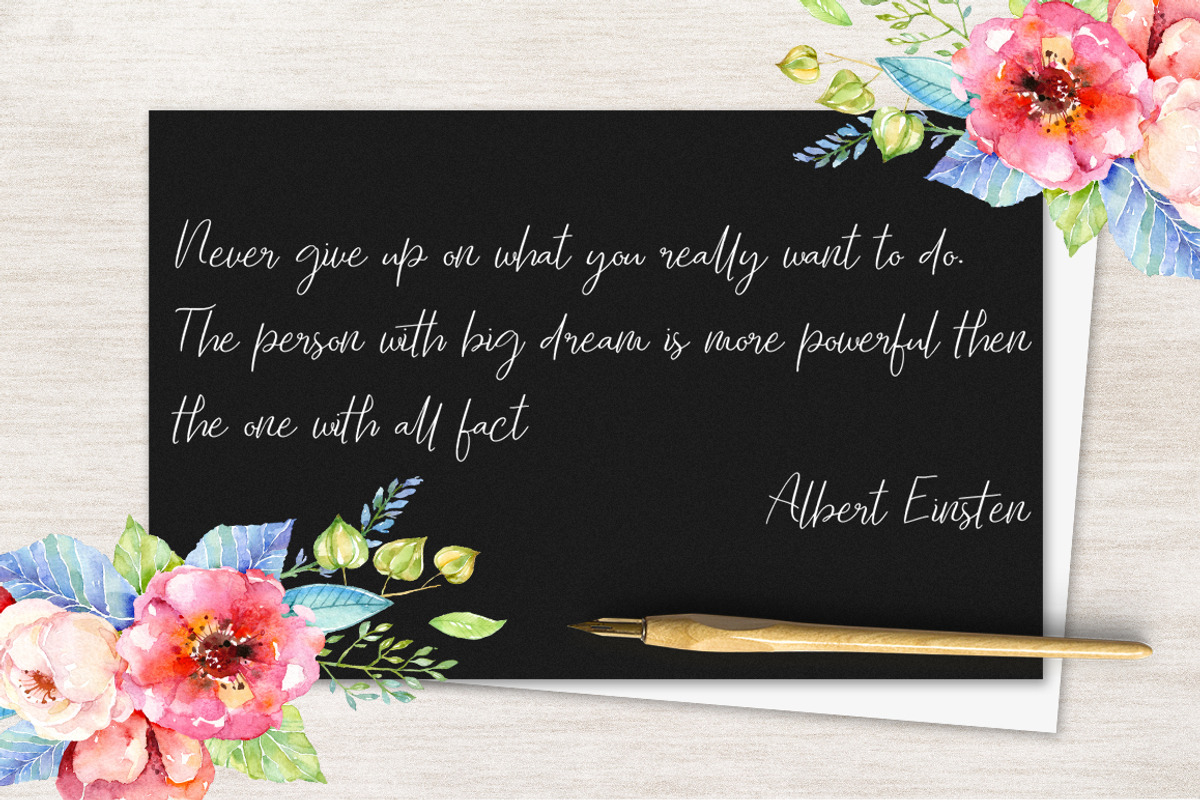 Never give up on what you really want to do.
The person with big dream is more powerful then
the one with all fact
Albert Einsten